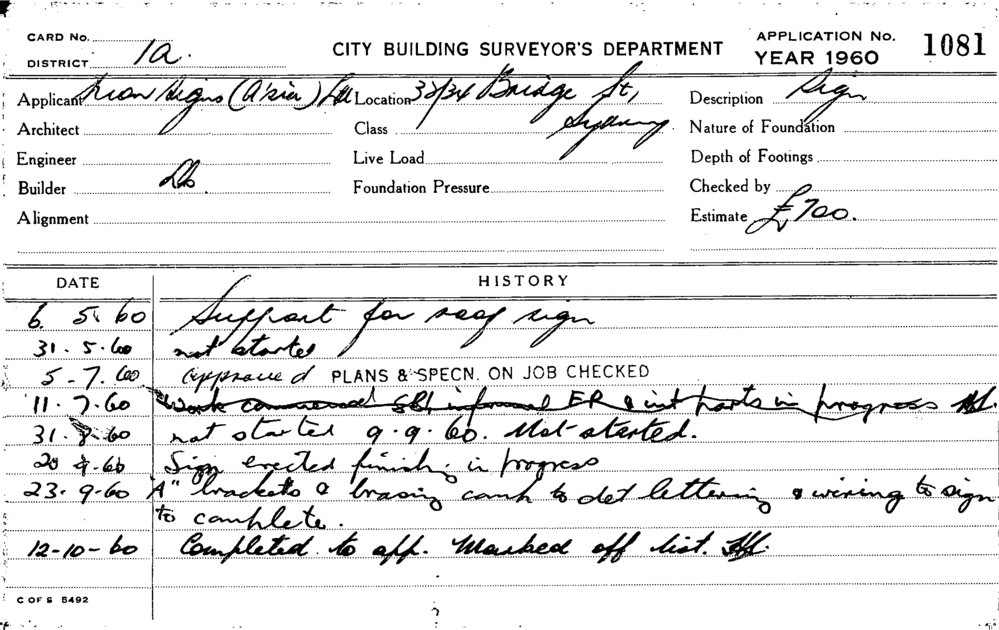 CARD No.
DISTRICT 1a.
CITY BUILDING SURVEYOR'S DEPARTMENT
APPLICATION No. 1081
YEAR 1960
Applicant Signs (Asia) Ltd Location 32/34 Bridge St,
Sydney
Description Sign
Architect
Class
Nature of Foundation
Engineer
Live Load
Depth of Footings
Builder Do.
Foundation Pressure
Checked by
Alignment
Estimate £700.
DATE HISTORY
6. 5. 60 Support for roof sign
31. 5. 60 not started
5-7. 60 approved PLANS & SPECN. ON JOB CHECKED
11. 7. 60 Work commenced informal & int parts in progress
31. 8. 60 not started 9. 9. 60. Not started.
20 9.60 Sign erected finish. in progress
23. 9. 60 "A" brackets & brasing comp to det lettering & wiring to sign
to complete.
12-10-60 Completed to app. Marked off list.
C OF S 5492